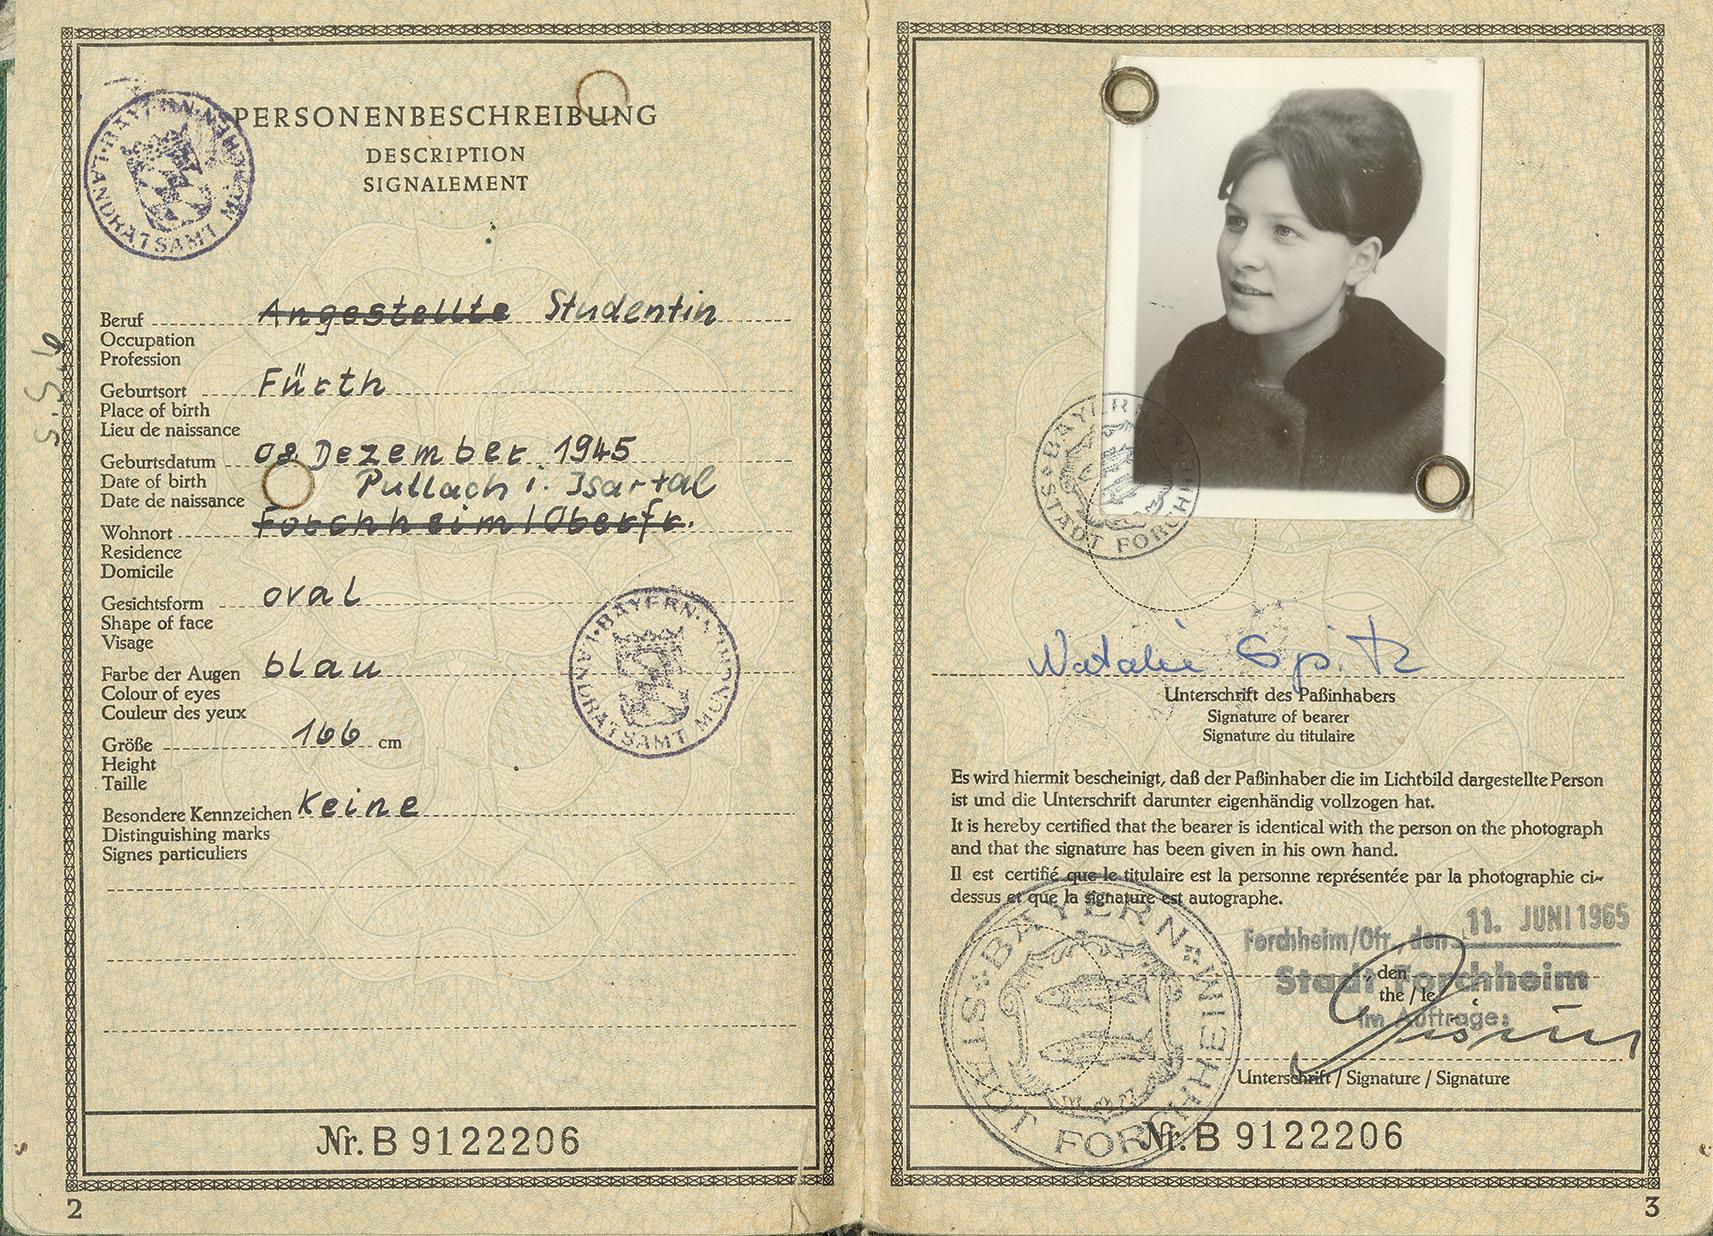 PERSONENBESCHREIBUNG
DESCRIPTION
SIGNALEMENT
BAYERN · LANDRATSAMT MÜNCHEN
Beruf Angestellte Studentin
Occupation
Profession
Geburtsort Fürth
Place of birth
Lieu de naissance
Geburtsdatum 08. Dezember 1945
Date of birth
Date de naissance
Pullach i. Isartal
Wohnort Forchheim/Oberfr.
Residence
Domicile
Gesichtsform oval
Shape of face
Visage
Farbe der Augen blau
Colour of eyes
Couleur des yeux
Größe 166 cm
Height
Taille
Besondere Kennzeichen Keine
Distinguishing marks
Signes particuliers
BAYERN · LANDRATSAMT MÜNCHEN
Nr. B 9122206
2
BAYERN STADT FORCHHEIM
Natalie Spitz
Unterschrift des Paßinhabers
Signature of bearer
Signature du titulaire
Es wird hiermit bescheinigt, daß der Paßinhaber die im Lichtbild dargestellte Person
ist und die Unterschrift darunter eigenhändig vollzogen hat.
It is hereby certified that the bearer is identical with the person on the photograph
and that the signature has been given in his own hand.
Il est certifié que le titulaire est la personne représentée par la photographie ci-
dessus et que la signature est autographe.
Forchheim/Ofr., den 11. JUNI 1965
den
Stadt Forchheim
the / le
im Auftrage:
Unterschrift / Signature / Signature
BAYERN STADT FORCHHEIM
Nr. B 9122206
3